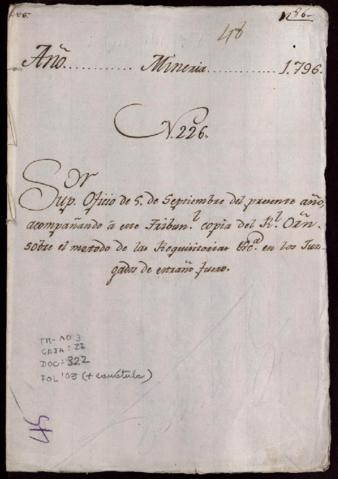 186.
48
Año. .......... Mineria ............ 1.796.
N. 226.
Sor
Sup. Oficio de 5. de Septiembre del presente año,
acompañando á este Tribun.l copia del R.l Orn.
sobre el metodo de las Requisitorias &c.a en los Juz-
gados de extraño fuero.
TM-AO 3
CAJA: 22
DOC: 322
FOL: 03 (+ carátula)